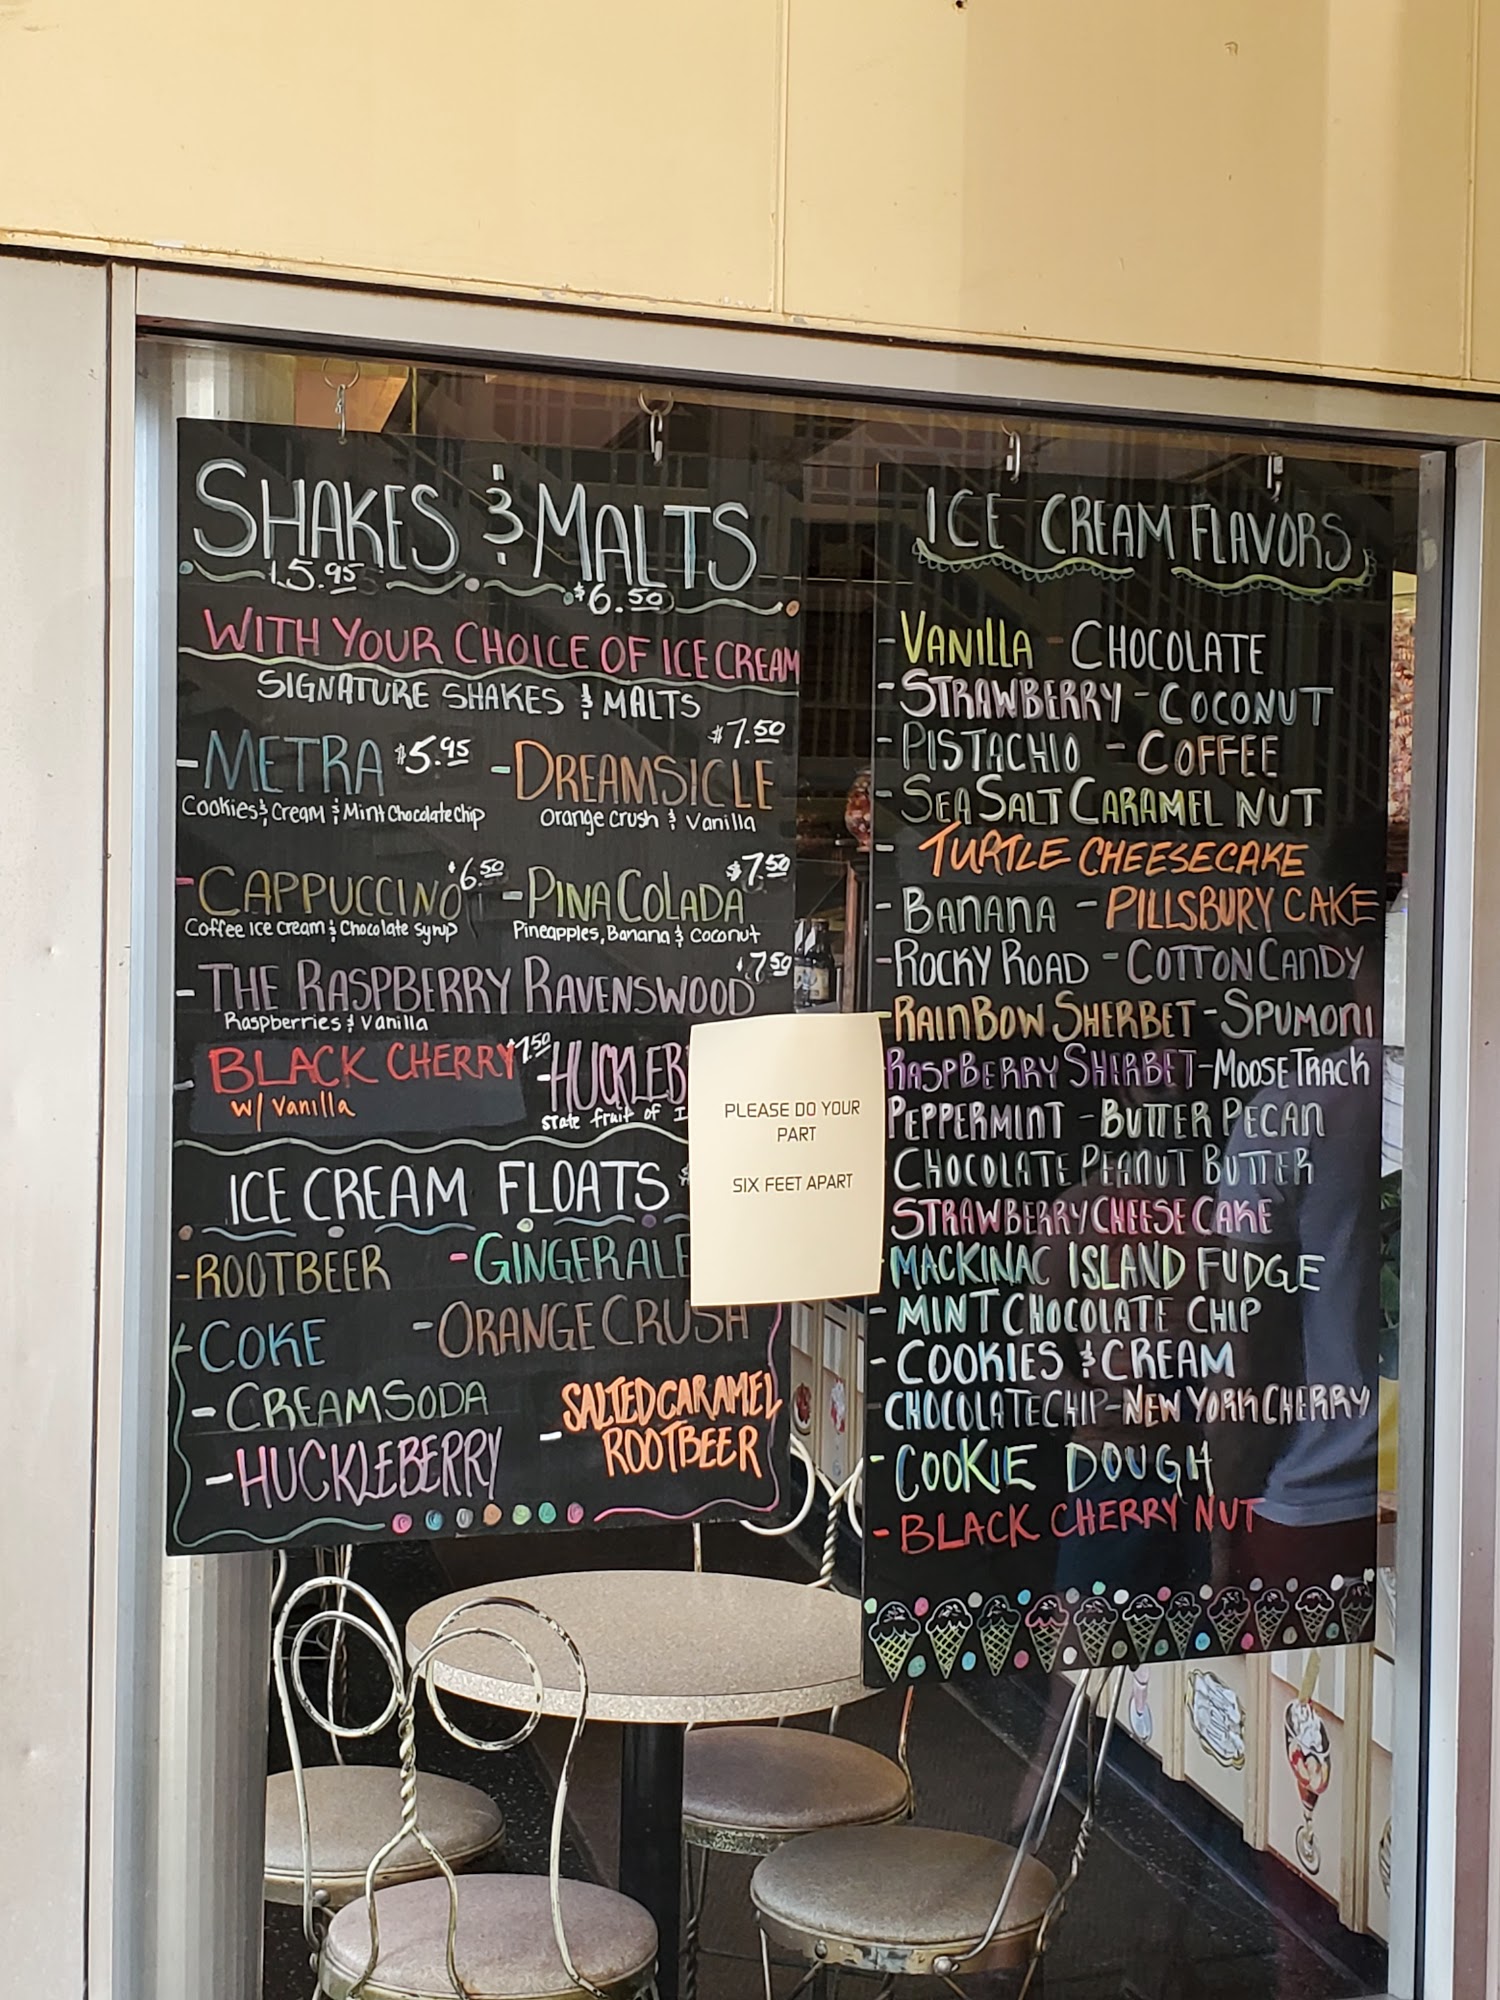 SHAKES & MALTS
$5.95
$6.50
WITH YOUR CHOICE OF ICE CREAM
SIGNATURE SHAKES & MALTS
- METRA $5.95
Cookies & Cream & Mint Chocolate Chip
- DREAMSICLE $7.50
Orange Crush & Vanilla
- CAPPUCCINO $6.50
Coffee Ice Cream & Chocolate Syrup
- PINA COLADA $7.50
Pineapples, Banana & Coconut
- THE RASPBERRY RAVENSWOOD $7.50
Raspberries & Vanilla
- BLACK CHERRY $7.50
W/ Vanilla
- HUCKLEB
State fruit of I
ICE CREAM FLOATS $
- ROOTBEER - GINGERALE
- COKE - ORANGE CRUSH
- CREAM SODA
- SALTED CARAMEL
ROOTBEER
- HUCKLEBERRY
PLEASE DO YOUR
PART
SIX FEET APART
ICE CREAM FLAVORS
- VANILLA - CHOCOLATE
- STRAWBERRY - COCONUT
- PISTACHIO - COFFEE
- SEA SALT CARAMEL NUT
- TURTLE CHEESECAKE
- BANANA - PILLSBURY CAKE
- ROCKY ROAD - COTTON CANDY
- RAINBOW SHERBET - SPUMONI
RASPBERRY SHERBET - MOOSE TRACK
PEPPERMINT - BUTTER PECAN
CHOCOLATE PEANUT BUTTER
STRAWBERRY CHEESE CAKE
MACKINAC ISLAND FUDGE
- MINT CHOCOLATE CHIP
- COOKIES & CREAM
CHOCOLATE CHIP - NEW YORK CHERRY
- COOKIE DOUGH
- BLACK CHERRY NUT